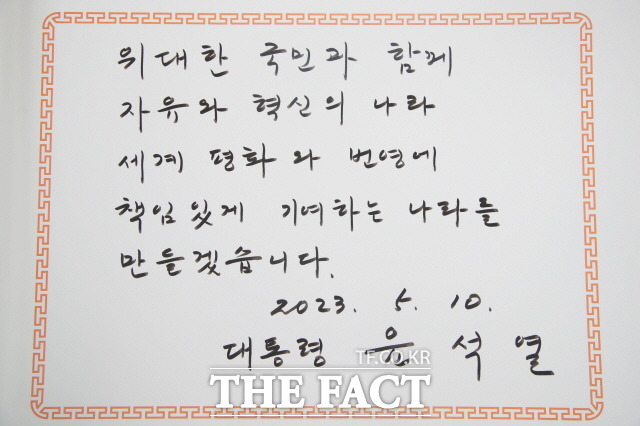 위대한 국민과 함께
자유와 혁신의 나라
세계 평화와 번영에
책임있게 기여하는 나라를
만들겠습니다.
2023. 5. 10.
대통령 윤석열
TF.CO.KR
THE FACT